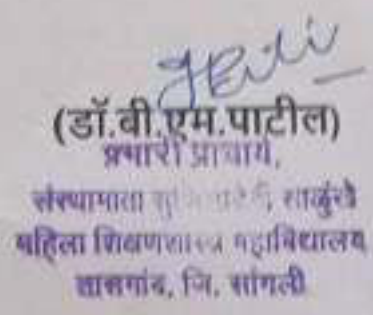 (डॉ.बी.एम.पाटील)
प्रभारी प्राचार्य,
संस्थामाता साळुंखे
महिला शिक्षणशास्त्र महाविद्यालय
तासगांव, जि. सांगली